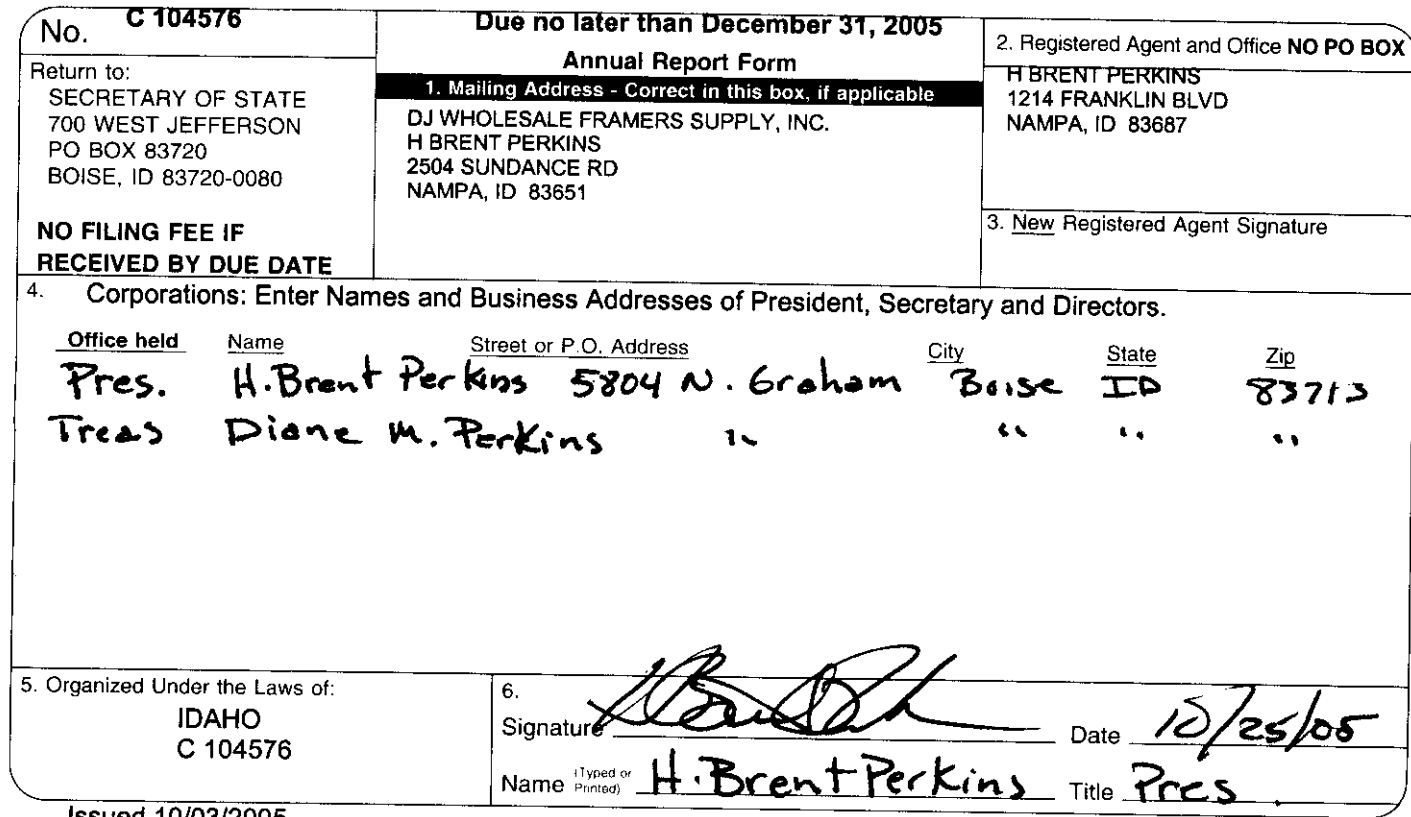 No. C 104576
Return to:
SECRETARY OF STATE
700 WEST JEFFERSON
PO BOX 83720
BOISE, ID 83720-0080
NO FILING FEE IF
RECEIVED BY DUE DATE
Due no later than December 31, 2005
Annual Report Form
1. Mailing Address - Correct in this box, if applicable
DJ WHOLESALE FRAMERS SUPPLY, INC.
H BRENT PERKINS
2504 SUNDANCE RD
NAMPA, ID 83651
2. Registered Agent and Office NO PO BOX
H BRENT PERKINS
1214 FRANKLIN BLVD
NAMPA, ID 83687
3. New Registered Agent Signature
4. Corporations: Enter Names and Business Addresses of President, Secretary and Directors.
Office held Name Street or P.O. Address City State Zip
Pres. H. Brent Perkins 5804 N. Graham Boise ID 83713
Treas Diane M. Perkins " " " "
5. Organized Under the Laws of:
IDAHO
C 104576
6.
Signature Date 10/25/05
Name (Typed or Printed) H. Brent Perkins Title Pres.
Issued 10/03/2005